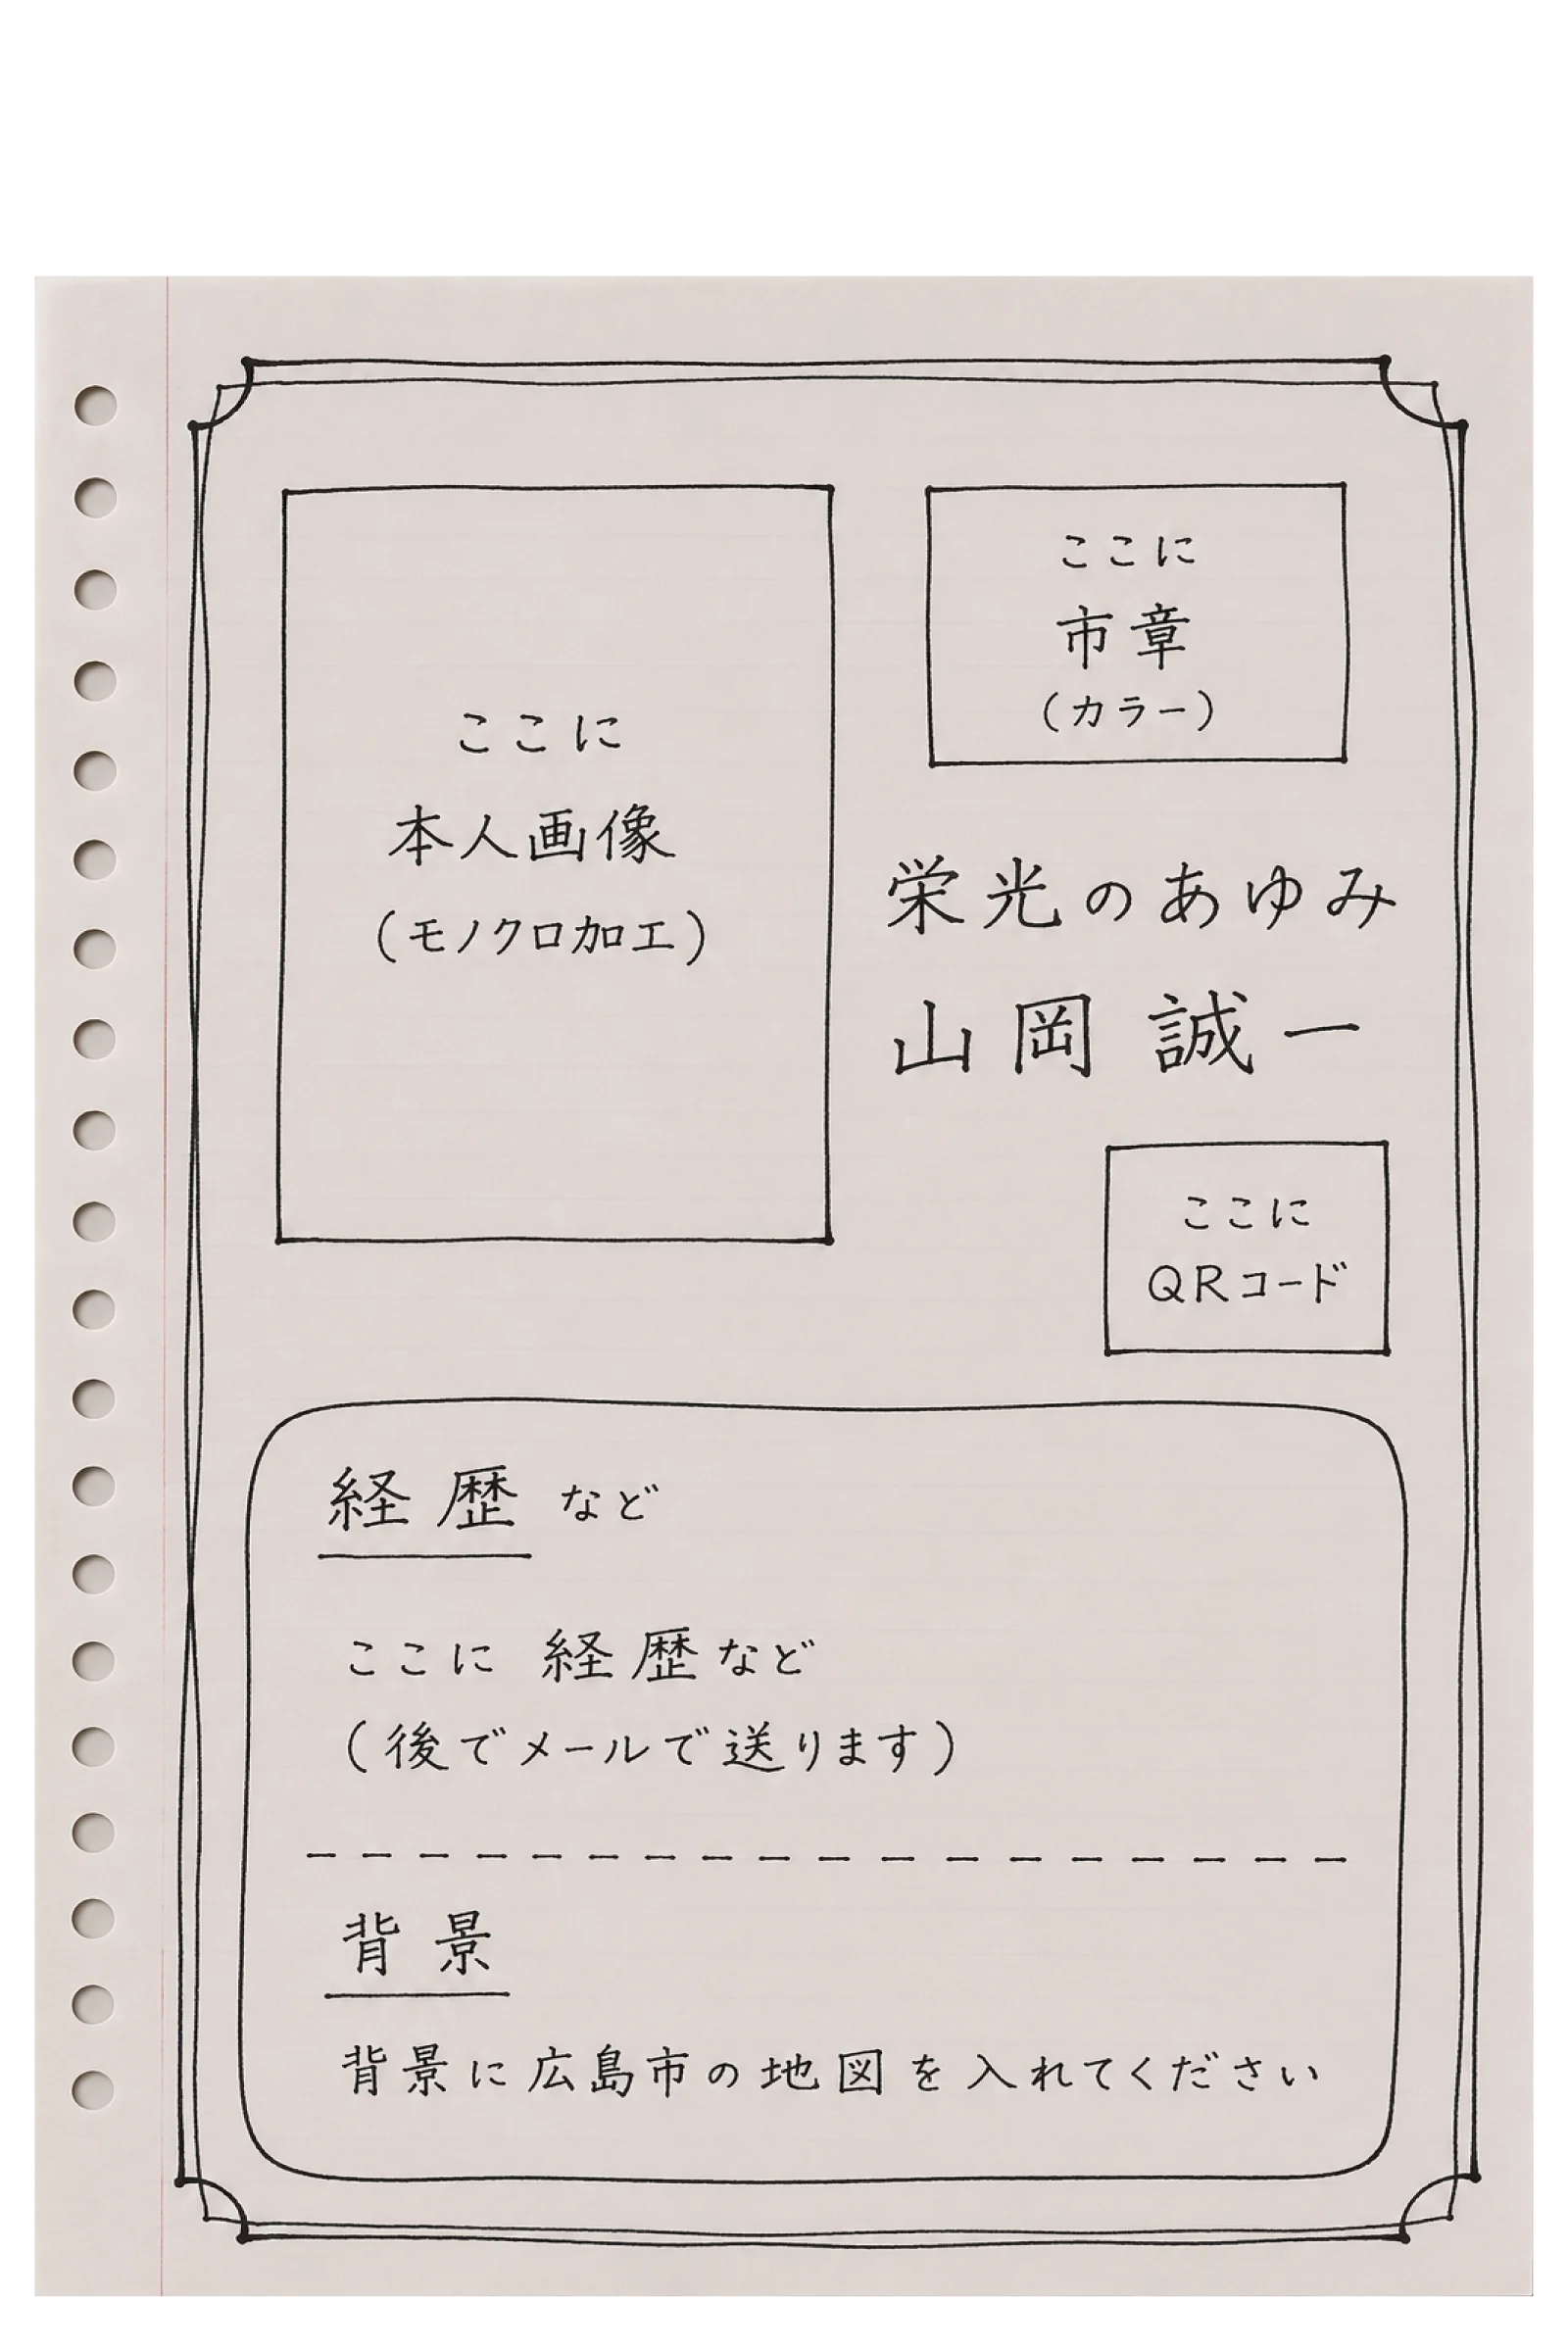 ここに
本人画像
(モノクロ加工)
ここに
市章
(カラー)
栄光のあゆみ
山岡 誠一
ここに
QRコード
経歴 など
ここに 経歴など
(後でメールで送ります)
背景
背景に広島市の地図を入れてください